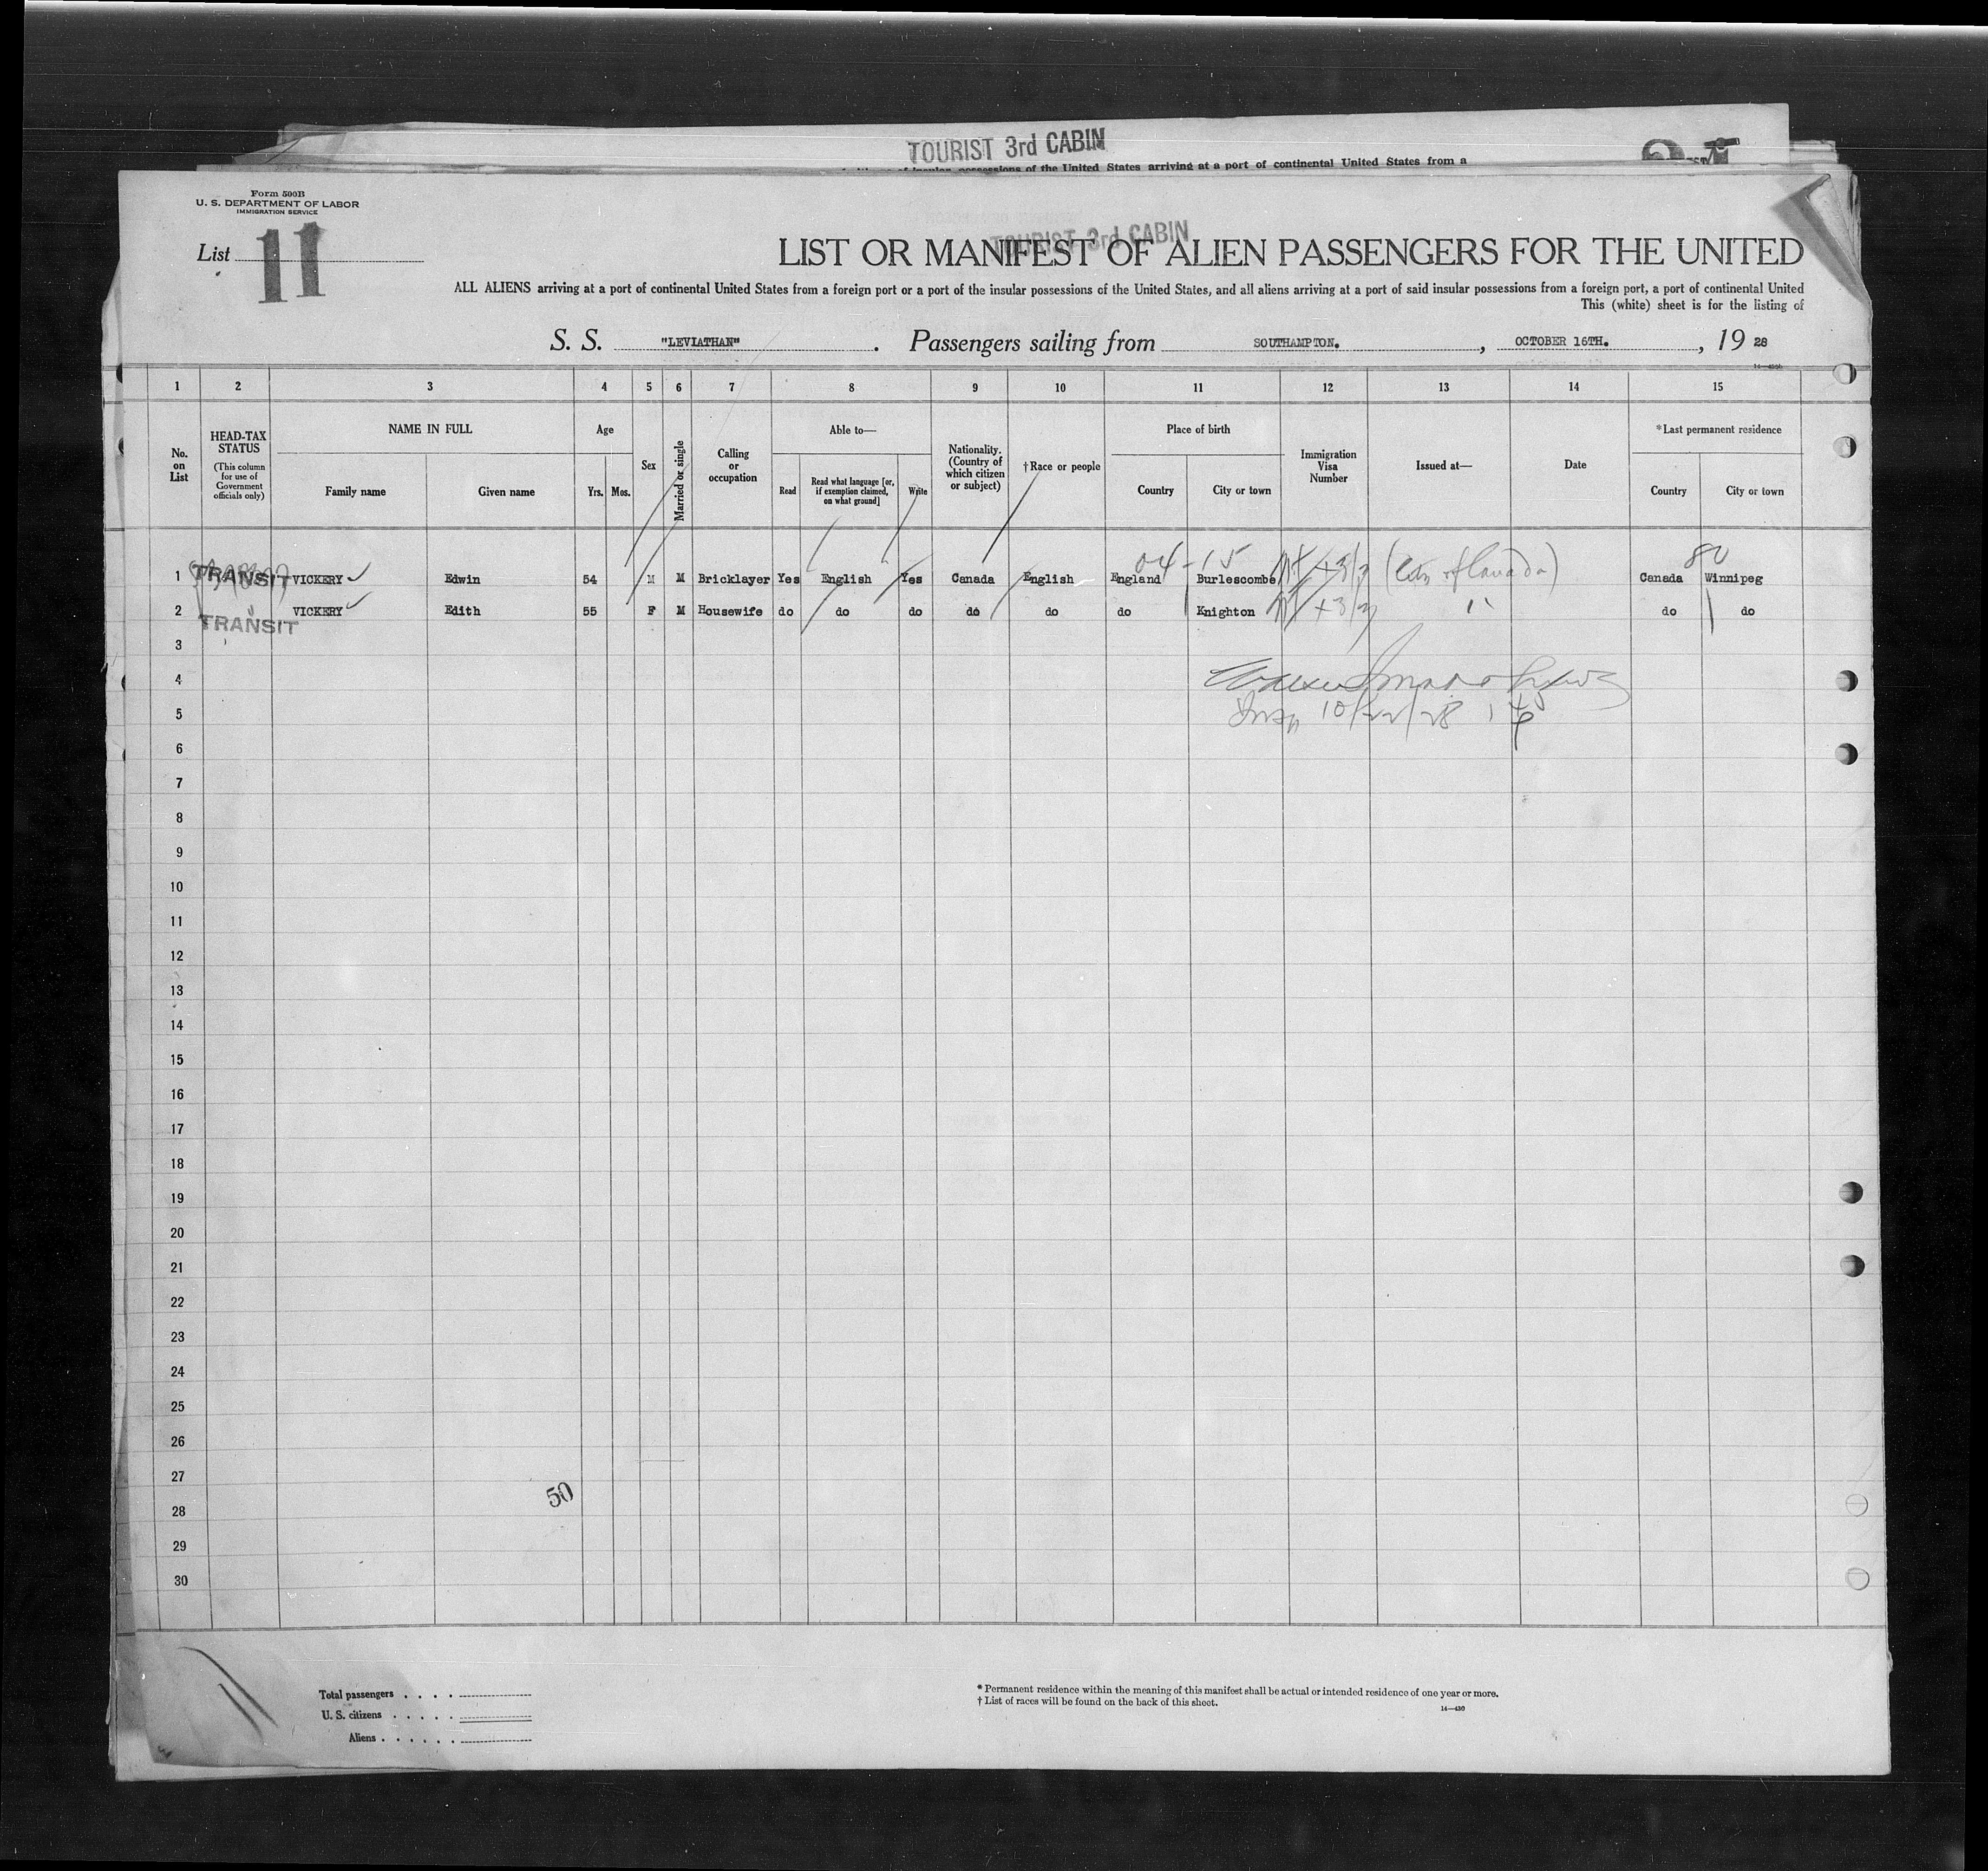 TOURIST 3rd CABIN
insular possessions of the United States arriving at a port of continental United States from a
Form 500B
U. S. DEPARTMENT OF LABOR
IMMIGRATION SERVICE
List 11
TOURIST 3rd CABIN
LIST OR MANIFEST OF ALIEN PASSENGERS FOR THE UNITED
ALL ALIENS arriving at a port of continental United States from a foreign port or a port of the insular possessions of the United States, and all aliens arriving at a port of said insular possessions from a foreign port, a port of continental United
This (white) sheet is for the listing of
S. S. "LEVIATHAN". Passengers sailing from SOUTHAMPTON., OCTOBER 16TH., 19 28
1 2 3 4 5 6 7 8 9 10 11 12 13 14 15
No. on List
HEAD-TAX STATUS
(This column for use of Government officials only)
NAME IN FULL
Family name Given name
Age
Yrs. Mos.
Sex
Married or single
Calling or occupation
Able to—
Read
Read what language [or, if exemption claimed, on what ground]
Write
Nationality. (Country of which citizen or subject)
†Race or people
Place of birth
Country City or town
Immigration Visa Number
Issued at—
Date
*Last permanent residence
Country City or town
04-15 80
1 TRANSIT VICKERY Edwin 54 M M Bricklayer Yes English Yes Canada English England Burlescombe Canada Winnipeg
2 TRANSIT VICKERY Edith 55 F M Housewife do do do do do do Knighton " do do
3
4
5 10/22/28
6
7
8
9
10
11
12
13
14
15
16
17
18
19
20
21
22
23
24
25
26
27
50
28
29
30
Total passengers . . . .
U. S. citizens . . . . .
Aliens . . . . . .
* Permanent residence within the meaning of this manifest shall be actual or intended residence of one year or more.
† List of races will be found on the back of this sheet.
14—430